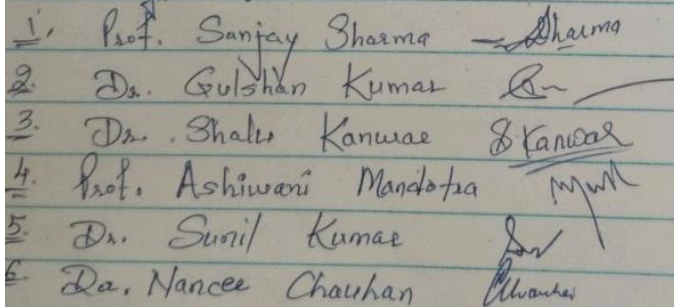 1. Prof. Sanjay Sharma - Sharma
2. Dr. Gulshan Kumar
3. Dr. Shalu Kanwar S Kanwar
4. Prof. Ashiwani Mandotra
5. Dr. Sunil Kumar
6. Dr. Nancee Chauhan